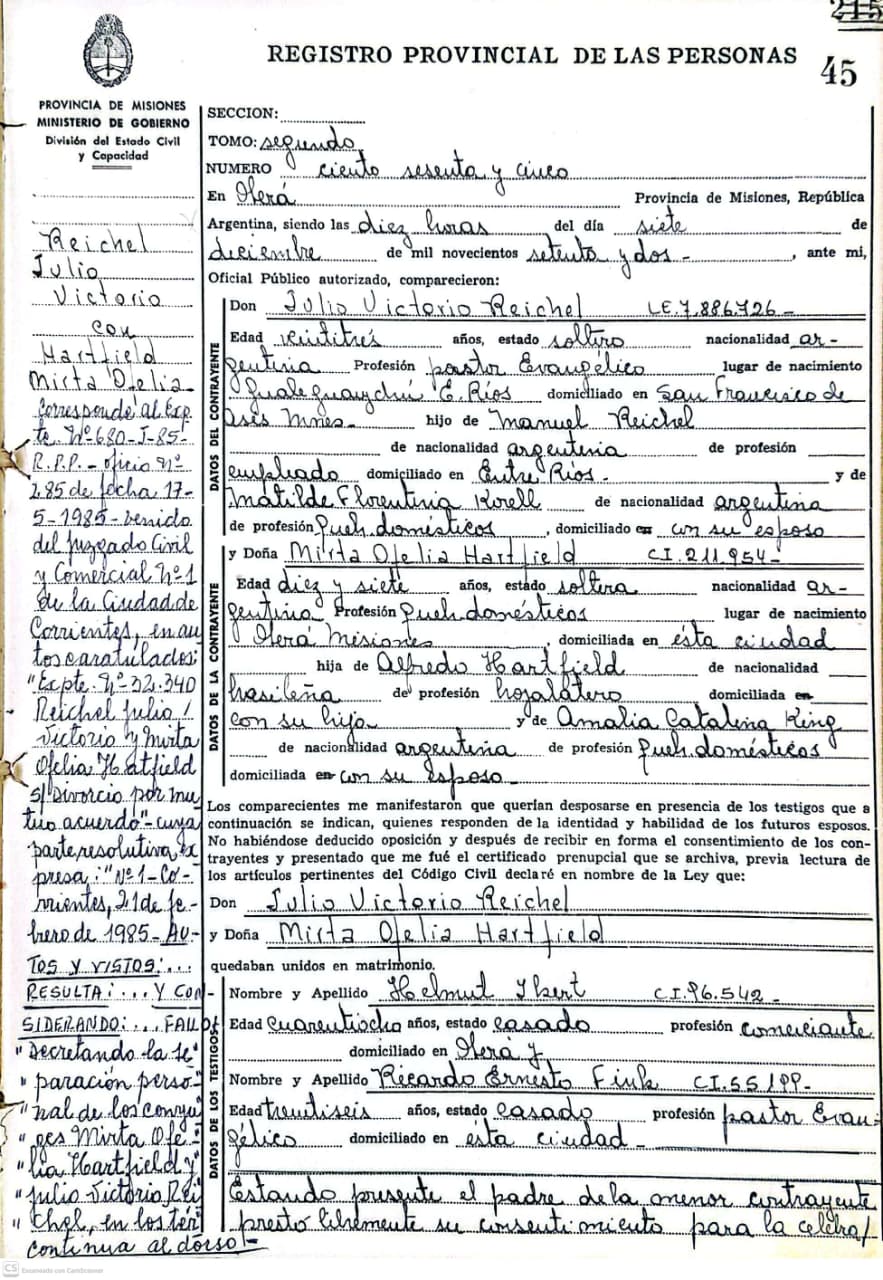 215
REGISTRO PROVINCIAL DE LAS PERSONAS
45
PROVINCIA DE MISIONES
MINISTERIO DE GOBIERNO
División del Estado Civil
y Capacidad
Reichel
Julio
Victorio
con
Hartfield
Mirta Ofelia
Corresponde al Exp
te. Nº 680-J-85-
R.P.P.- oficio Nº
285 de fecha 17-
5-1985- venido
del Juzgado Civil
y Comercial Nº 1
de la Ciudad de
Corrientes, en au
tos caratulados:
"Expte. Nº 32.340
Reichel Julio
Victorio y Mirta
Ofelia Hatfield
s/ Divorcio por mu
tuo acuerdo"- cuya
parte resolutiva ex
presa: "Nº 1-Co-
rrientes, 21 de fe-
brero de 1985- AU-
TOS Y VISTOS:...
RESULTA:... Y CON-
SIDERANDO:... FALLO:
"Decretando la se
"paración perso-
"nal de los cónyu
"ges Mirta Ofe-
"lia Hartfield y
"Julio Victorio Rei
"chel, en los tér
continua al dorso-
SECCION:
TOMO: segundo
NUMERO ciento sesenta y cinco
En Oberá Provincia de Misiones, República
Argentina, siendo las diez horas del día siete de
diciembre de mil novecientos setenta y dos -, ante mi,
Oficial Público autorizado, comparecieron:
DATOS DEL CONTRAYENTE
Don Julio Victorio Reichel LE.7.886.726-
Edad veintitrés años, estado soltero nacionalidad ar-
gentina Profesión pastor Evangélico lugar de nacimiento
Gualeguaychú E. Ríos domiciliado en San Francisco de
Asís Mnes- hijo de Manuel Reichel
de nacionalidad argentina de profesión
empleado domiciliado en Entre Ríos.- y de
Matilde Florentina Korell de nacionalidad argentina
de profesión Queh. domésticos, domiciliado en con su esposo
DATOS DE LA CONTRAYENTE
y Doña Mirta Ofelia Hartfield CI.211.954-
Edad diez y siete años, estado soltera nacionalidad ar-
gentina Profesión Queh. domésticos lugar de nacimiento
Oberá Misiones, domiciliada en ésta ciudad
hija de Alfredo Hartfield de nacionalidad
brasileña de profesión hojalatero domiciliada en
con su hija y de Amalia Catalina King
de nacionalidad argentina de profesión Queh. domésticos
domiciliada en con su esposo
Los comparecientes me manifestaron que querían desposarse en presencia de los testigos que a
continuación se indican, quienes responden de la identidad y habilidad de los futuros esposos.
No habiéndose deducido oposición y después de recibir en forma el consentimiento de los con-
trayentes y presentado que me fué el certificado prenupcial que se archiva, previa lectura de
los artículos pertinentes del Código Civil declaré en nombre de la Ley que:
Don Julio Victorio Reichel
y Doña Mirta Ofelia Hartfield
quedaban unidos en matrimonio.
DATOS DE LOS TESTIGOS
Nombre y Apellido Helmut C.I.96.542-
Edad cuarentiocho años, estado casado profesión comerciante
domiciliado en Oberá y
Nombre y Apellido Ricardo Ernesto Fink CI.55199-
Edad treintiseis años, estado casado profesión pastor Evan-
gélico domiciliado en ésta ciudad-
Estando presente el padre de la menor contrayente
prestó libremente su consentimiento para la celebra/
CS Escaneado con CamScanner